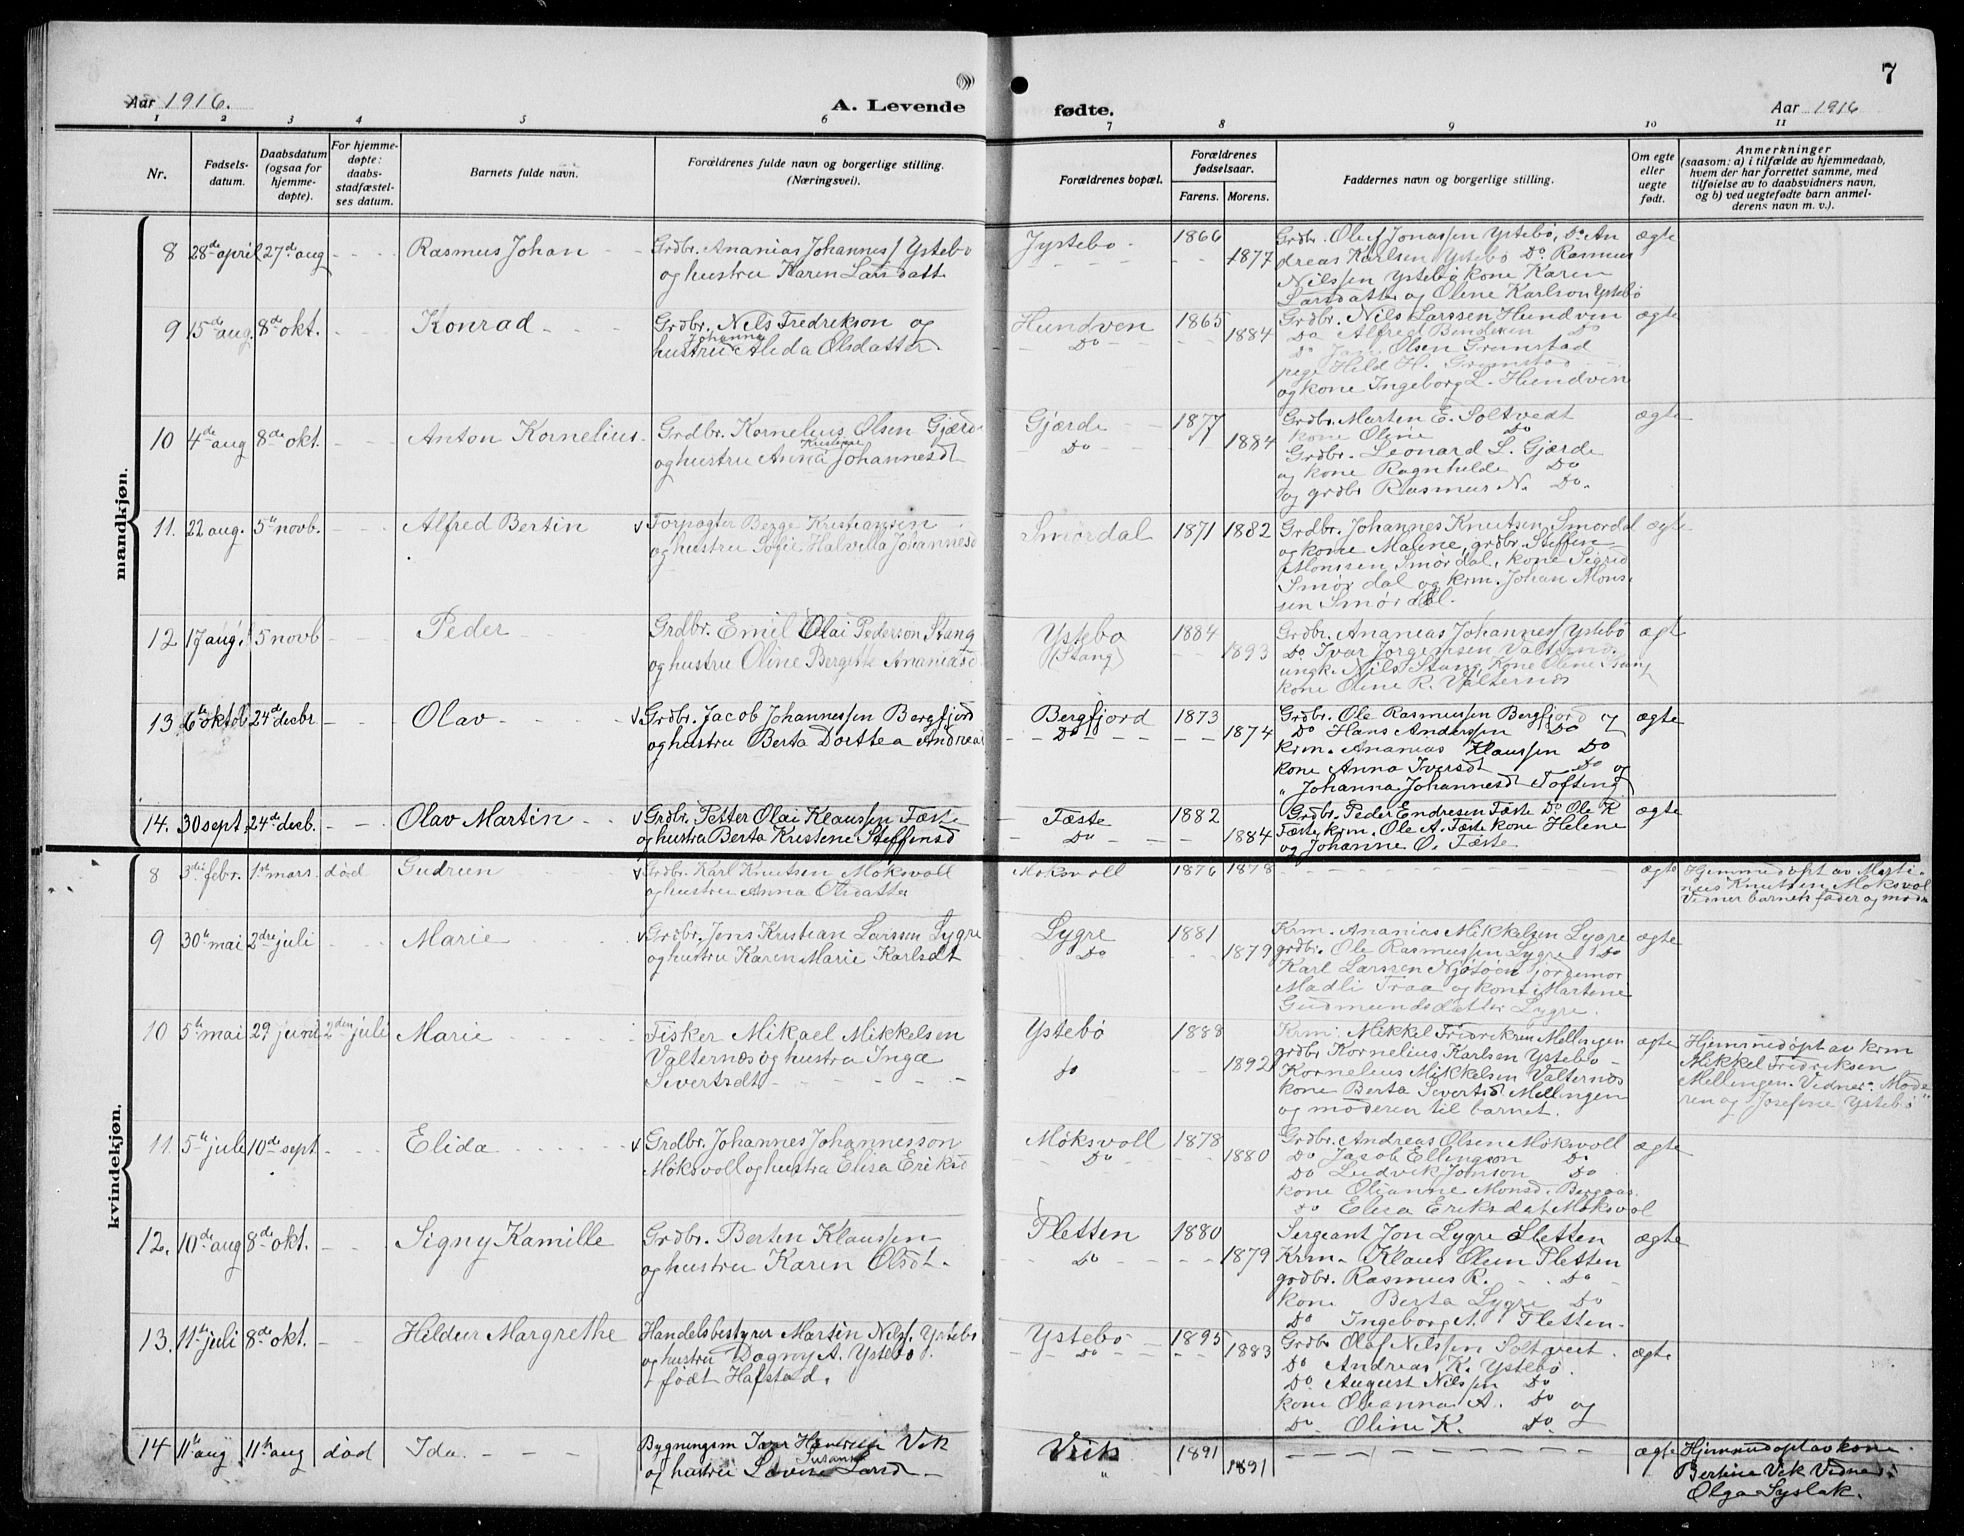 7
Aar 1916.
A. Levende fødte.
Aar 1916
1 2 3 4 5 6 7 8 9 10 11
Nr.
Fødsels-
datum.
Daabsdatum
(ogsaa for
hjemme-
døpte).
For hjemme-
døpte:
daabs-
stadfæstel-
ses datum.
Barnets fulde navn.
Forældrenes fulde navn og borgerlige stilling.
(Næringsvei).
Forældrenes bopæl.
Forældrenes
fødselsaar.
Farens. Morens.
Faddernes navn og borgerlige stilling.
Om egte
eller
uegte
født.
Anmerkninger
(saasom: a) i tilfælde av hjemmedaab,
hvem der har forrettet samme, med
tilføielse av to daabsvidners navn,
og b) ved uegtefødte barn anmel-
derens navn m. v.).
mandkjøn.
8 28de april 27de aug Rasmus Johan
Grdbr. Ananias Johannes/ Ystebø
og hustru Karen Larsdatt.
Ystebø 1866 1877
Grdbr. Oluf Jonassen Ystebø, Do An
dreas Karlsen Ystebø Do Rasmus
Nilssen Ystebø kone Karen
Larsdatter og Oline Karlson Ystebø
ægte
9 15de aug. 8de okt. Konrad
Grdbr. Nils Fredrikson og
Johanna
hustru Alida Olsdatter.
Hundven 1865
Do 1884
Grdbr. Nils Larssen Hundven
Do Alfred Bendiksen Do
Do Olsen Gramstad
pige Hild H. Gramstad
og kone Ingeborg L. Hundven
ægte
10 4de aug 8de okt. Anton Kornelius.
Grdbr. Kornelius Olsen Gjærde
Kristine
og hustru Anna Johannesd
Gjærde 1877
Do 1884
Grdbr. Marten E. Soltvedt
kone Oline Do
Grdbr. Leonard L. Gjærde
og kone Ragnhilde Do
og grdbr Rasmus N. Do.
ægte
11. 22 aug. 5te novb. Alfred Bertin
Forpagter Berge Kristiansen
og hustru Sofie Halvilla Johannesd
Smørdal 1871 1882
Grdbr. Johannes Knutsen Smørdal
og kone Malene, grdbr. Steffen
Monssen Smørdal, kone Sigrid
Smørdal og krm. Johan Mons-
sen Smørdal.
ægte
12 17 aug. 5 novb Peder
Grdbr. Emil Olai Pederson Stang
og hustru Oline Bergitte Ananiasd.
Ystebø 1884
(Stang) 1893
Grdbr. Ananias Johannes/ Ystebø
Do Ivar Jorgensen Valternes
ungk. Nils Stang, Kone Oline Stang
kone Oline R. Valternes
ægt
13. 6te oktob 24de decbr Olav
Grdbr. Jacob Johannessen Bergfjord
og hustru Berta Dorttea Andreas
Bergfjord 1873
Do 1874
Grdbr. Ole Rasmussen Bergfjord
Do Hans Anderssen Do
krm. Ananias Klaussen Do
kone Anna Iversdt Do og
" Johanna Johannesd Tofting
ægte
14. 30 sept 24de decb. Olav Martin
Grdbr. Petter Olai Klaussen Tæste
og hustra Berta Kristene Steffensd
Tæste 1882
Do 1884
Grdbr. Peder Endresen Tæste Do Ole K
Tæste, krm. Ole A. Tæste kone Helene
og Johanne O. Tæste
ægte
kvindekjøn.
8 3die febr. 1ste mars død Gudrun
Grdbr. Karl Knutsen Moksvoll
og hustru Anna Olsdatter
Moksvoll 1876 1878
ægte
Hjemmedøpt av Marti-
nus Knutsen Moksvol
Vidner barnets fader og mode
9 30te mai 2dre juli Marie
Grdbr. Jens Kristian Larssen Lygre
og hustru Karen Marie Karlsdt
Lygre 1881
Do 1879
Krm. Ananias Mikkelsen Lygre
grdbr. Ole Rasmussen Lygre Do
Karl Larssen Njøtøen jordemor
Madli Traa og kone Martene
Gudmundsdatter Lygre.
ægte
10 5te mai 29 juni 2den juli Marie
Fisker Mikael Mikkelsen
Valternes og hustra Inga
Sivertsdt
Ystebø 1888
Do 1892
Krm. Mikkel Fridriksen Mellingen
grdbr. Kornelius Karlsen Ystebø
Kornelius Mikkelsen Valternes
kone Berta Sivertsd Mellingen
og moderen til barnet.
ægte
Hjemmedøpt av krm
Mikkel Fridriksen
Mellingen. Vidner: Mode
ren og Josefine Ystebø
11. 5te juli 10de sept Elida
Grdbr. Johannes Johannesson
Møksvoll og hustra Elisa Eriksd
Møksvoll 1878
Do 1880
Grdbr. Andreas Olsen Møksvoll
Do Jacob Ellingson Do
Do Ludvik Jonson Do
kone Olianne Monsd.
Do Elisa Eriksdat Møksvol
ægte
12. 10de aug 8de okt. Signy Kamille
Grdbr. Berten Klaussen
og hustru Karen Olsdt.
Pletten 1880
Do 1879
Sergeant Jon Lygre Sletten
Krm. Klaus Olsen Pletten
grdbr. Rasmus R. Do
kone Berta Lygre Do
Do Ingeborg A. Pletten.
ægte
13. 11te juli 8de okt. Hildur Margrethe
Handelsbestyrer Martin Nils/. Ystebø
og hustru Dagny A. Ystebø
født Hafstad.
Ystebø 1895
Do 1883
Grdbr Olaf Nilssen Soltveit.
Do Andreas K. Ystebø.
Do August Nilssen Do
kone Olianna A. Do og
Do Oline K. Do.
ægte
14 11te aug 11te aug død Ida
Bygningsm Ivar Vik
Susanne
og hustru Lovise Larsd
Vik 1891
" 1891
ægte
Hjemmedøpt av kone
Bertine Vik Vidne:
Olga Syslak.